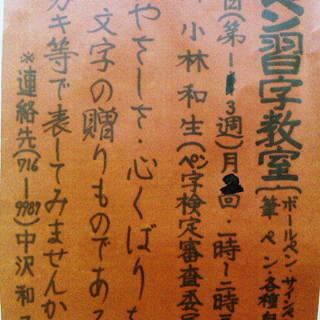 ペン習字教室(ボールペン・サインペ
筆ペン・各種
(第1・3週)月2回・一時~二時
小林和生(ペン字検定審査委員
やさしさ・心くばりを
文字の贈りものである
ガキ等で表してみませんか
※連絡先(716-9987)中沢和